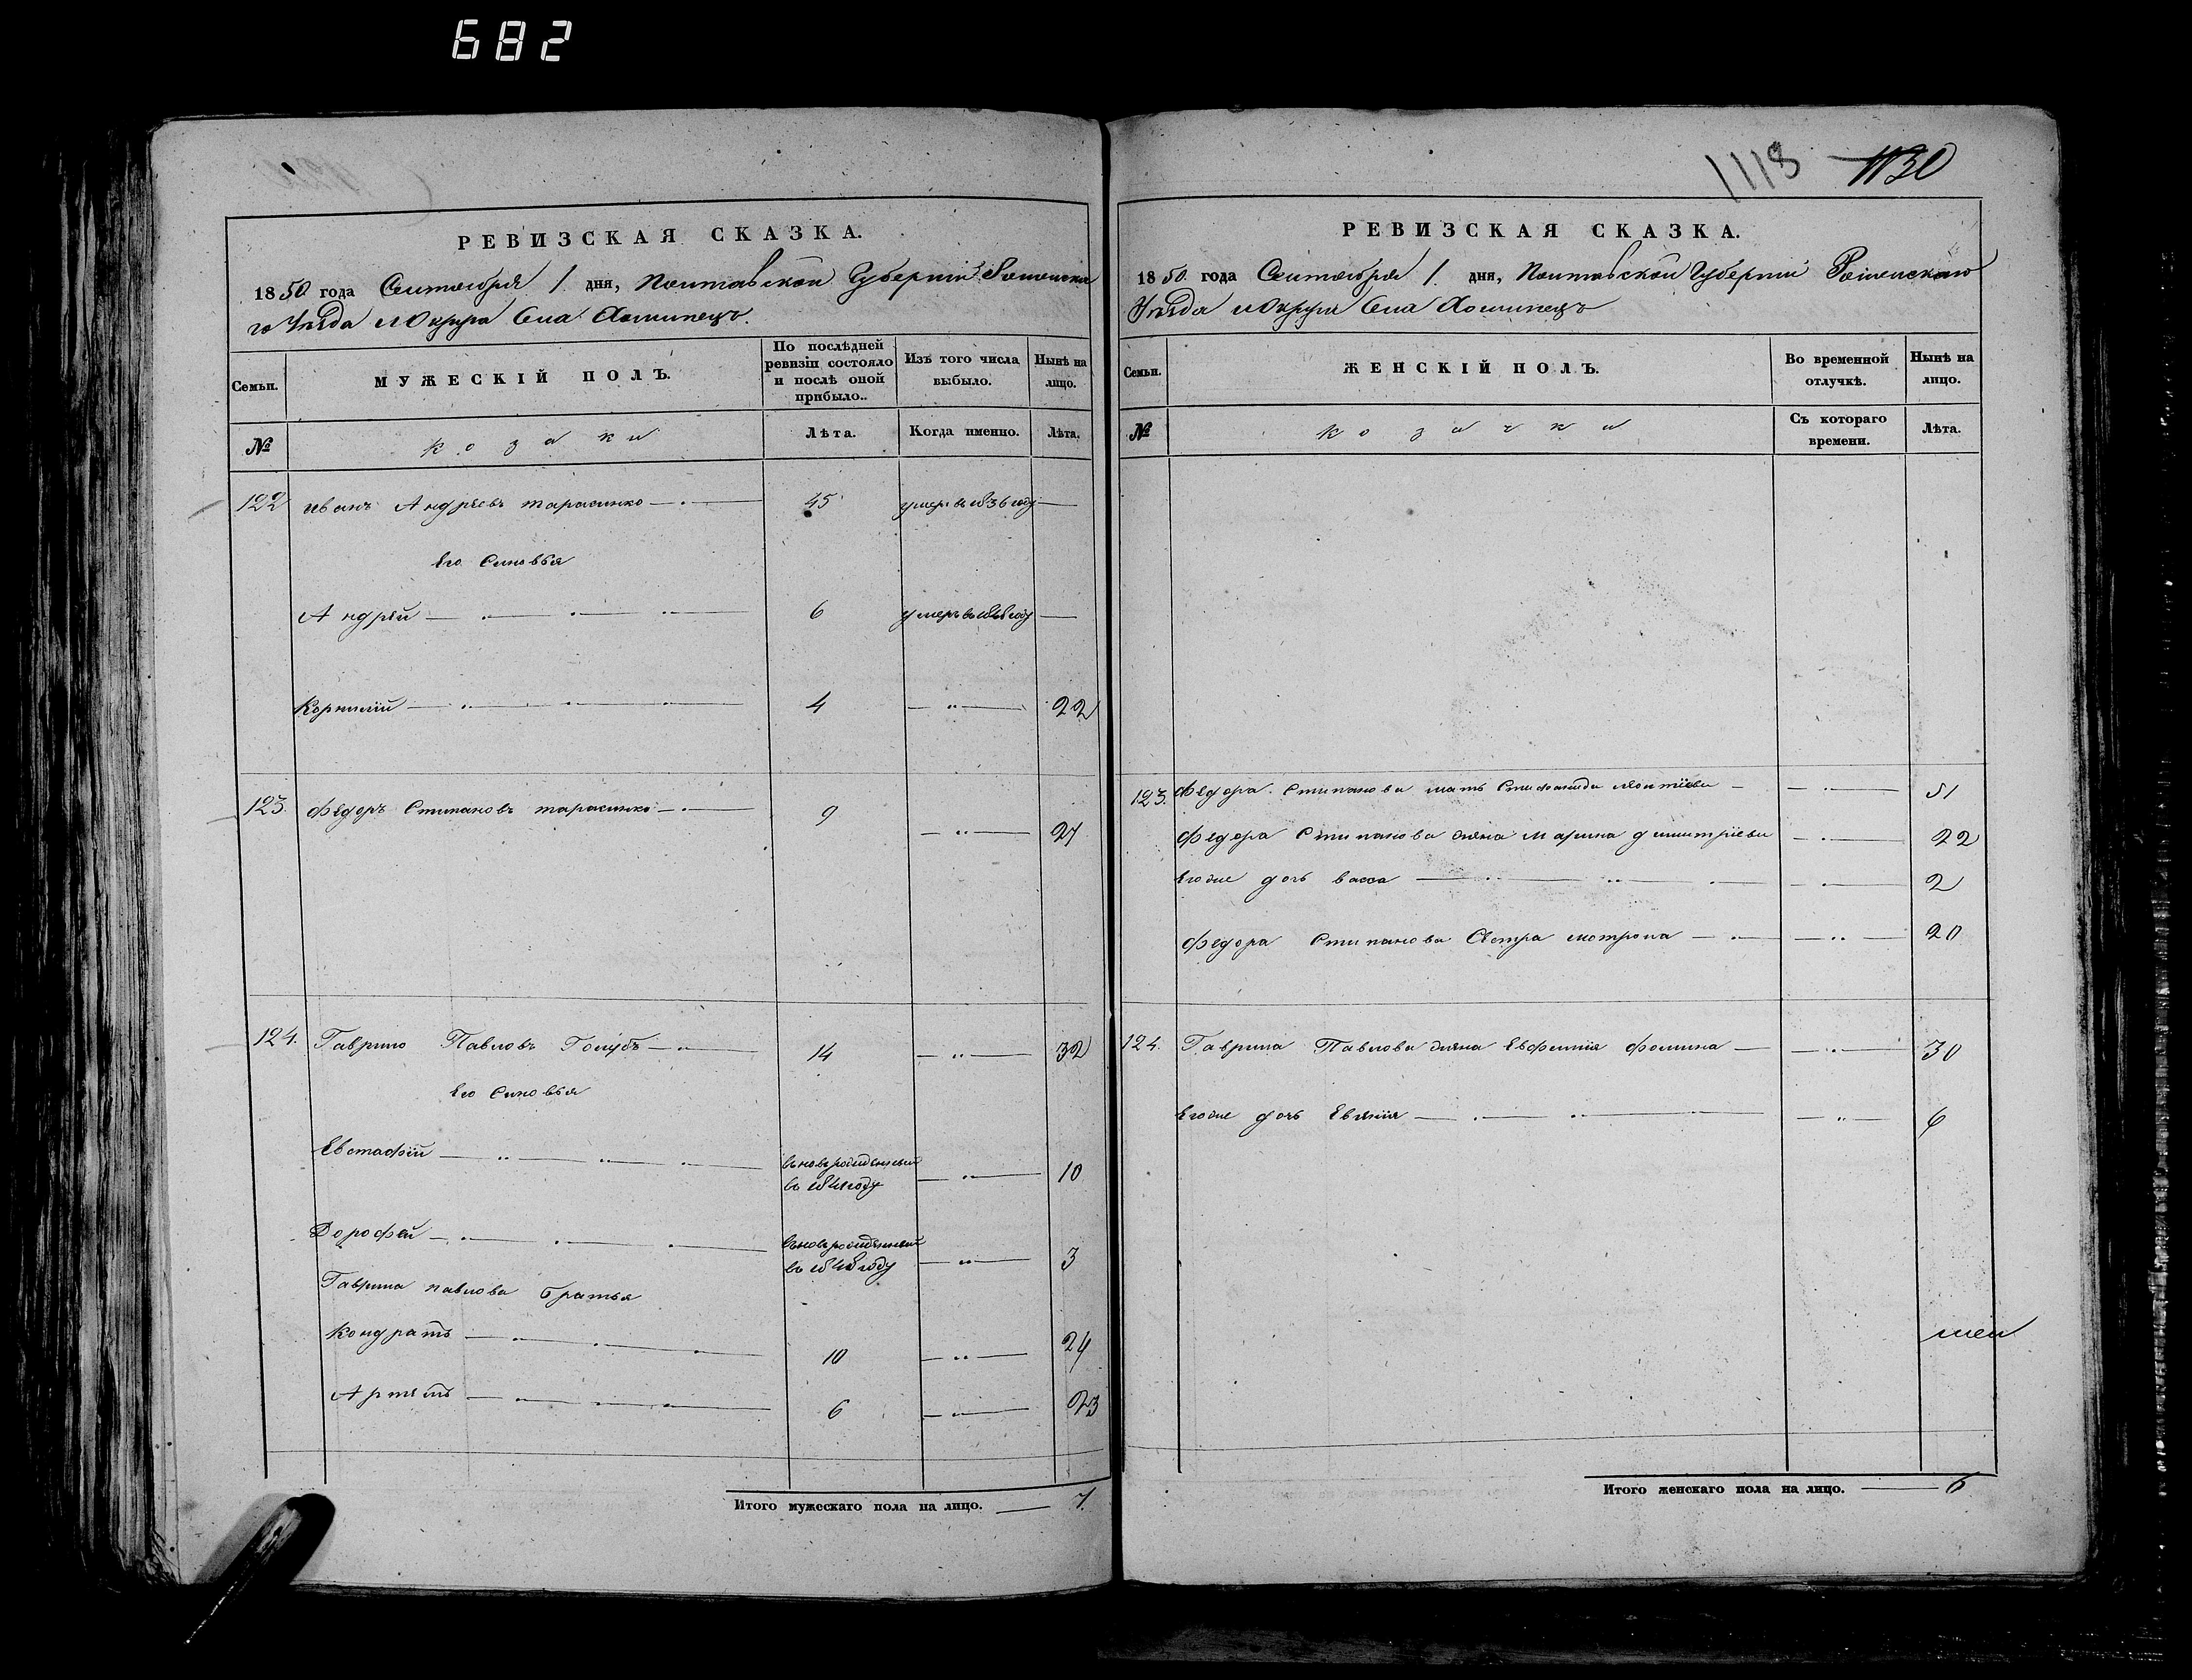 682
1118 1130
РЕВИЗСКАЯ СКАЗКА.
1850 года Сентября 1 дня, Полтавской Губерніи Роменска
го Уѣзда и Округа Села Хоминецъ.
Семьи.
МУЖЕСКІЙ ПОЛЪ.
По послѣдней ревизіи состояло и послѣ оной прибыло..
Изъ того числа выбыло.
Нынѣ на лицо.
№
козаки
Лѣта.
Когда именно.
Лѣта.
122 иванъ Андреевъ тарасенко 45 умеръ въ 1836 году
Его Синовья
Андрей 6 умеръ въ году
Корнилій 4 22
123. Федоръ Стипановъ тарасенко 9 27
124. Гаврило Павловъ Голубъ 14 32
Его Синовья
Евстафій вновьрожденный
въ году 10
Дорофей вновьрожденный
въ году 3
Гаврила павлова братья
Кондратъ 10 24
Артемъ 6 23
Итого мужескаго пола на лицо. 7.
РЕВИЗСКАЯ СКАЗКА.
1850 года Сентября 1. дня, Полтавской Губерніи Роменскаго
Уѣзда и Округи Села Хоминецъ
Семьи.
ЖЕНСКІЙ ПОЛЪ.
Во временной отлучкѣ.
Нынѣ на лицо.
№
козачки
Съ котораго времени.
Лѣта.
123. Федора Стипанова мать Стифанида леонтіева 51
Федора Стипанова жена Марина дмитріева 22
Егоже дочь васса 2
Федора Стипанова Сестра мотрона 20
124. Гаврила Павлова жена Евфимія фомина 30
Егоже дочь Евгенія 6
Итого женскаго пола на лицо. 6